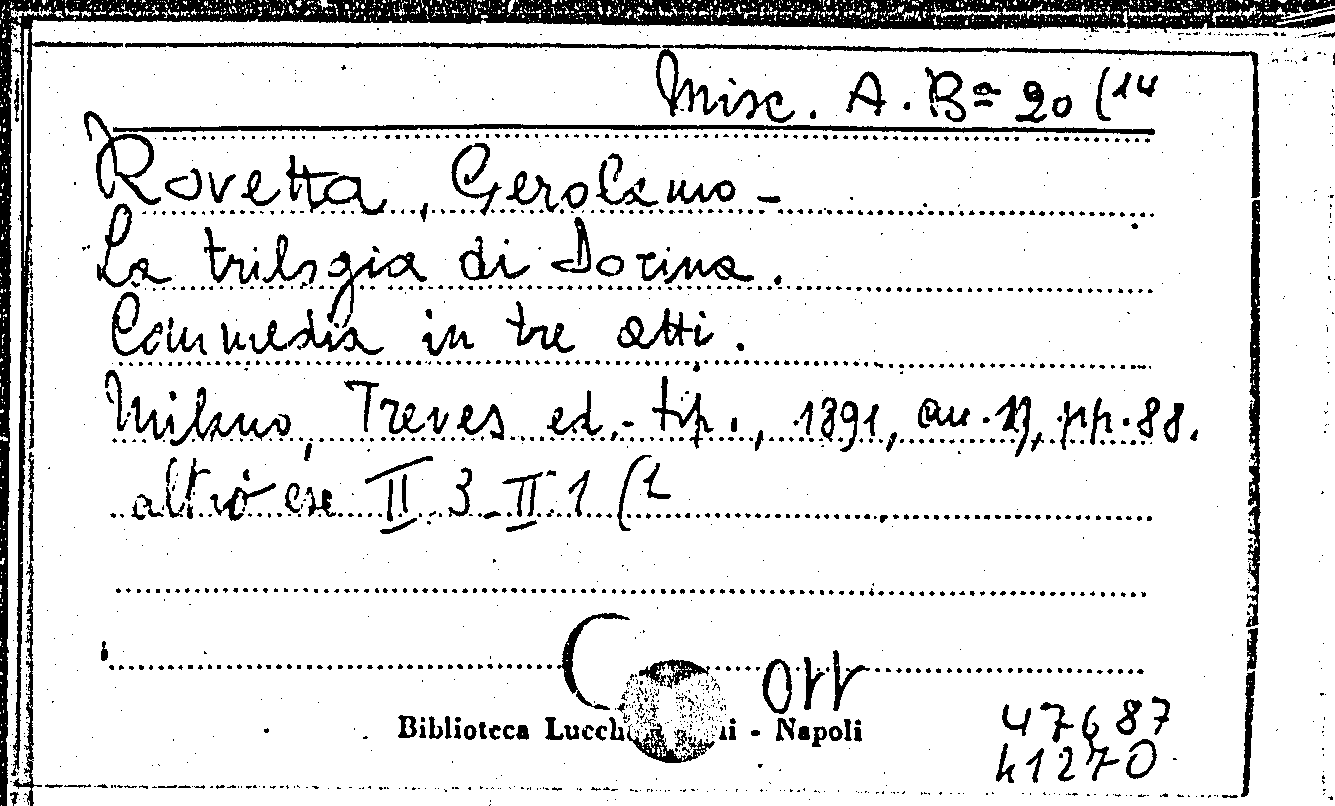 Misc. A. Bª 20 (14
Rovetta, Gerolamo -
La trilogia di Dorina.
Commedia in tre atti.
Milano, Treves ed.-tip., 1891, pp. 88.
altro ese II 3 - II 1 (2
C ott
Biblioteca Lucch ni - Napoli
47687
41270